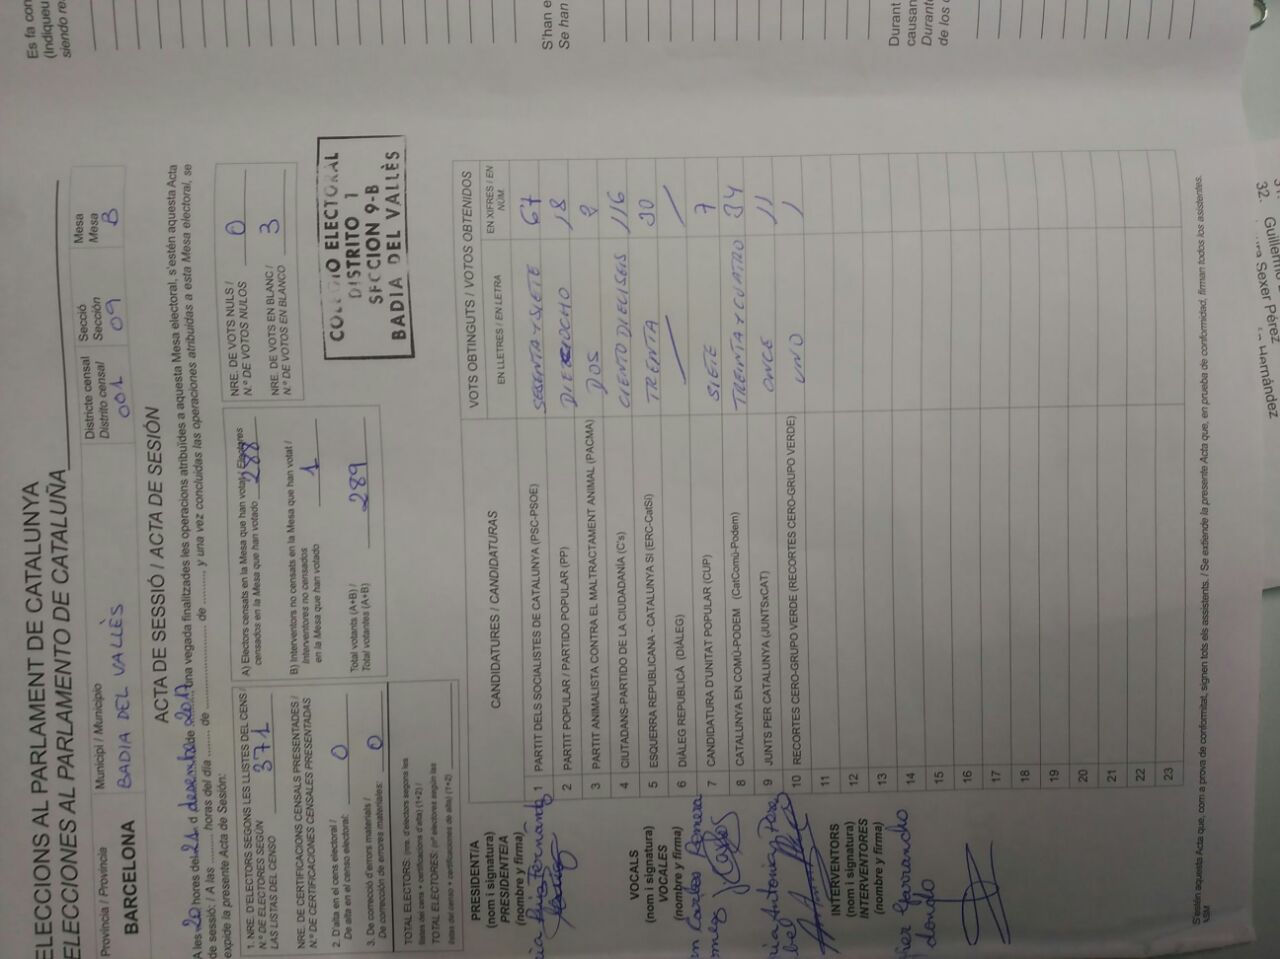 ELECCIONS AL PARLAMENT DE CATALUNYA
ELECCIONES AL PARLAMENTO DE CATALUÑA
Província / Provincia
BARCELONA
Municipi / Municipio
BADIA DEL VALLÈS
Districte censal
Distrito censal
001
Secció
Sección
09
Mesa
Mesa
B
ACTA DE SESSIÓ / ACTA DE SESIÓN
A les 20 hores del 21 d desembre de 2017, una vegada finalitzades les operacions atribuïdes a aquesta Mesa electoral, s'estén aquesta Acta
de sessió. / A las ......... horas del día ......... de ......................... de ........., y una vez concluidas las operaciones atribuidas a esta Mesa electoral, se
expide la presente Acta de Sesión:
1. NRE. D'ELECTORS SEGONS LES LLISTES DEL CENS /
N.º DE ELECTORES SEGÚN
LAS LISTAS DEL CENSO 371
NRE. DE CERTIFICACIONS CENSALS PRESENTADES /
N.º DE CERTIFICACIONES CENSALES PRESENTADAS
2. D'alta en el cens electoral /
De alta en el censo electoral: 0
3. De correcció d'errors materials /
De corrección de errores materiales: 0
TOTAL ELECTORS: (nre. d'electors segons les
llistes del cens + certificacions d'alta) (1+2) /
TOTAL ELECTORES: (nº electores según las
listas del censo + certificaciones de alta) (1+2)
A) Electors censats en la Mesa que han votat / Electores
censados en la Mesa que han votado 288
B) Interventors no censats en la Mesa que han votat /
Interventores no censados
en la Mesa que han votado 1
Total votants (A+B) /
Total votantes (A+B) 289
NRE. DE VOTS NULS /
N.º DE VOTOS NULOS 0
NRE. DE VOTS EN BLANC /
N.º DE VOTOS EN BLANCO 3
COLEGIO ELECTORAL
DISTRITO 1
SECCION 9-B
BADIA DEL VALLÈS
CANDIDATURES / CANDIDATURAS
VOTS OBTINGUTS / VOTOS OBTENIDOS
EN LLETRES / EN LETRA
EN XIFRES / EN NÚM.
1 PARTIT DELS SOCIALISTES DE CATALUNYA (PSC-PSOE) SESENTA Y SIETE 67
2 PARTIT POPULAR / PARTIDO POPULAR (PP) DIECIOCHO 18
3 PARTIT ANIMALISTA CONTRA EL MALTRACTAMENT ANIMAL (PACMA) DOS 2
4 CIUTADANS-PARTIDO DE LA CIUDADANÍA (C's) CIENTO DIECISEIS 116
5 ESQUERRA REPUBLICANA - CATALUNYA SÍ (ERC-CatSí) TRENTA 30
6 DIÀLEG REPUBLICÀ (DIÀLEG) / /
7 CANDIDATURA D'UNITAT POPULAR (CUP) SIETE 7
8 CATALUNYA EN COMÚ-PODEM (CatComú-Podem) TRENTA Y CUATRO 34
9 JUNTS PER CATALUNYA (JUNTSxCAT) ONCE 11
10 RECORTES CERO-GRUPO VERDE (RECORTES CERO-GRUPO VERDE) UNO 1
11
12
13
14
15
16
17
18
19
20
21
22
23
PRESIDENT/A
(nom i signatura)
PRESIDENTE/A
(nombre y firma)
VOCALS
(nom i signatura)
VOCALES
(nombre y firma)
INTERVENTORS
(nom i signatura)
INTERVENTORES
(nombre y firma)
S'estén aquesta Acta que, com a prova de conformitat, signen tots els assistents. / Se extiende la presente Acta que, en prueba de conformidad, firman todos los asistentes.
Es fa con
(Indiqueu
siendo re
S'han e
Se han
Durant
causan
Durante
de los
32.
Guillermo
Sexer Pérez
Hernández